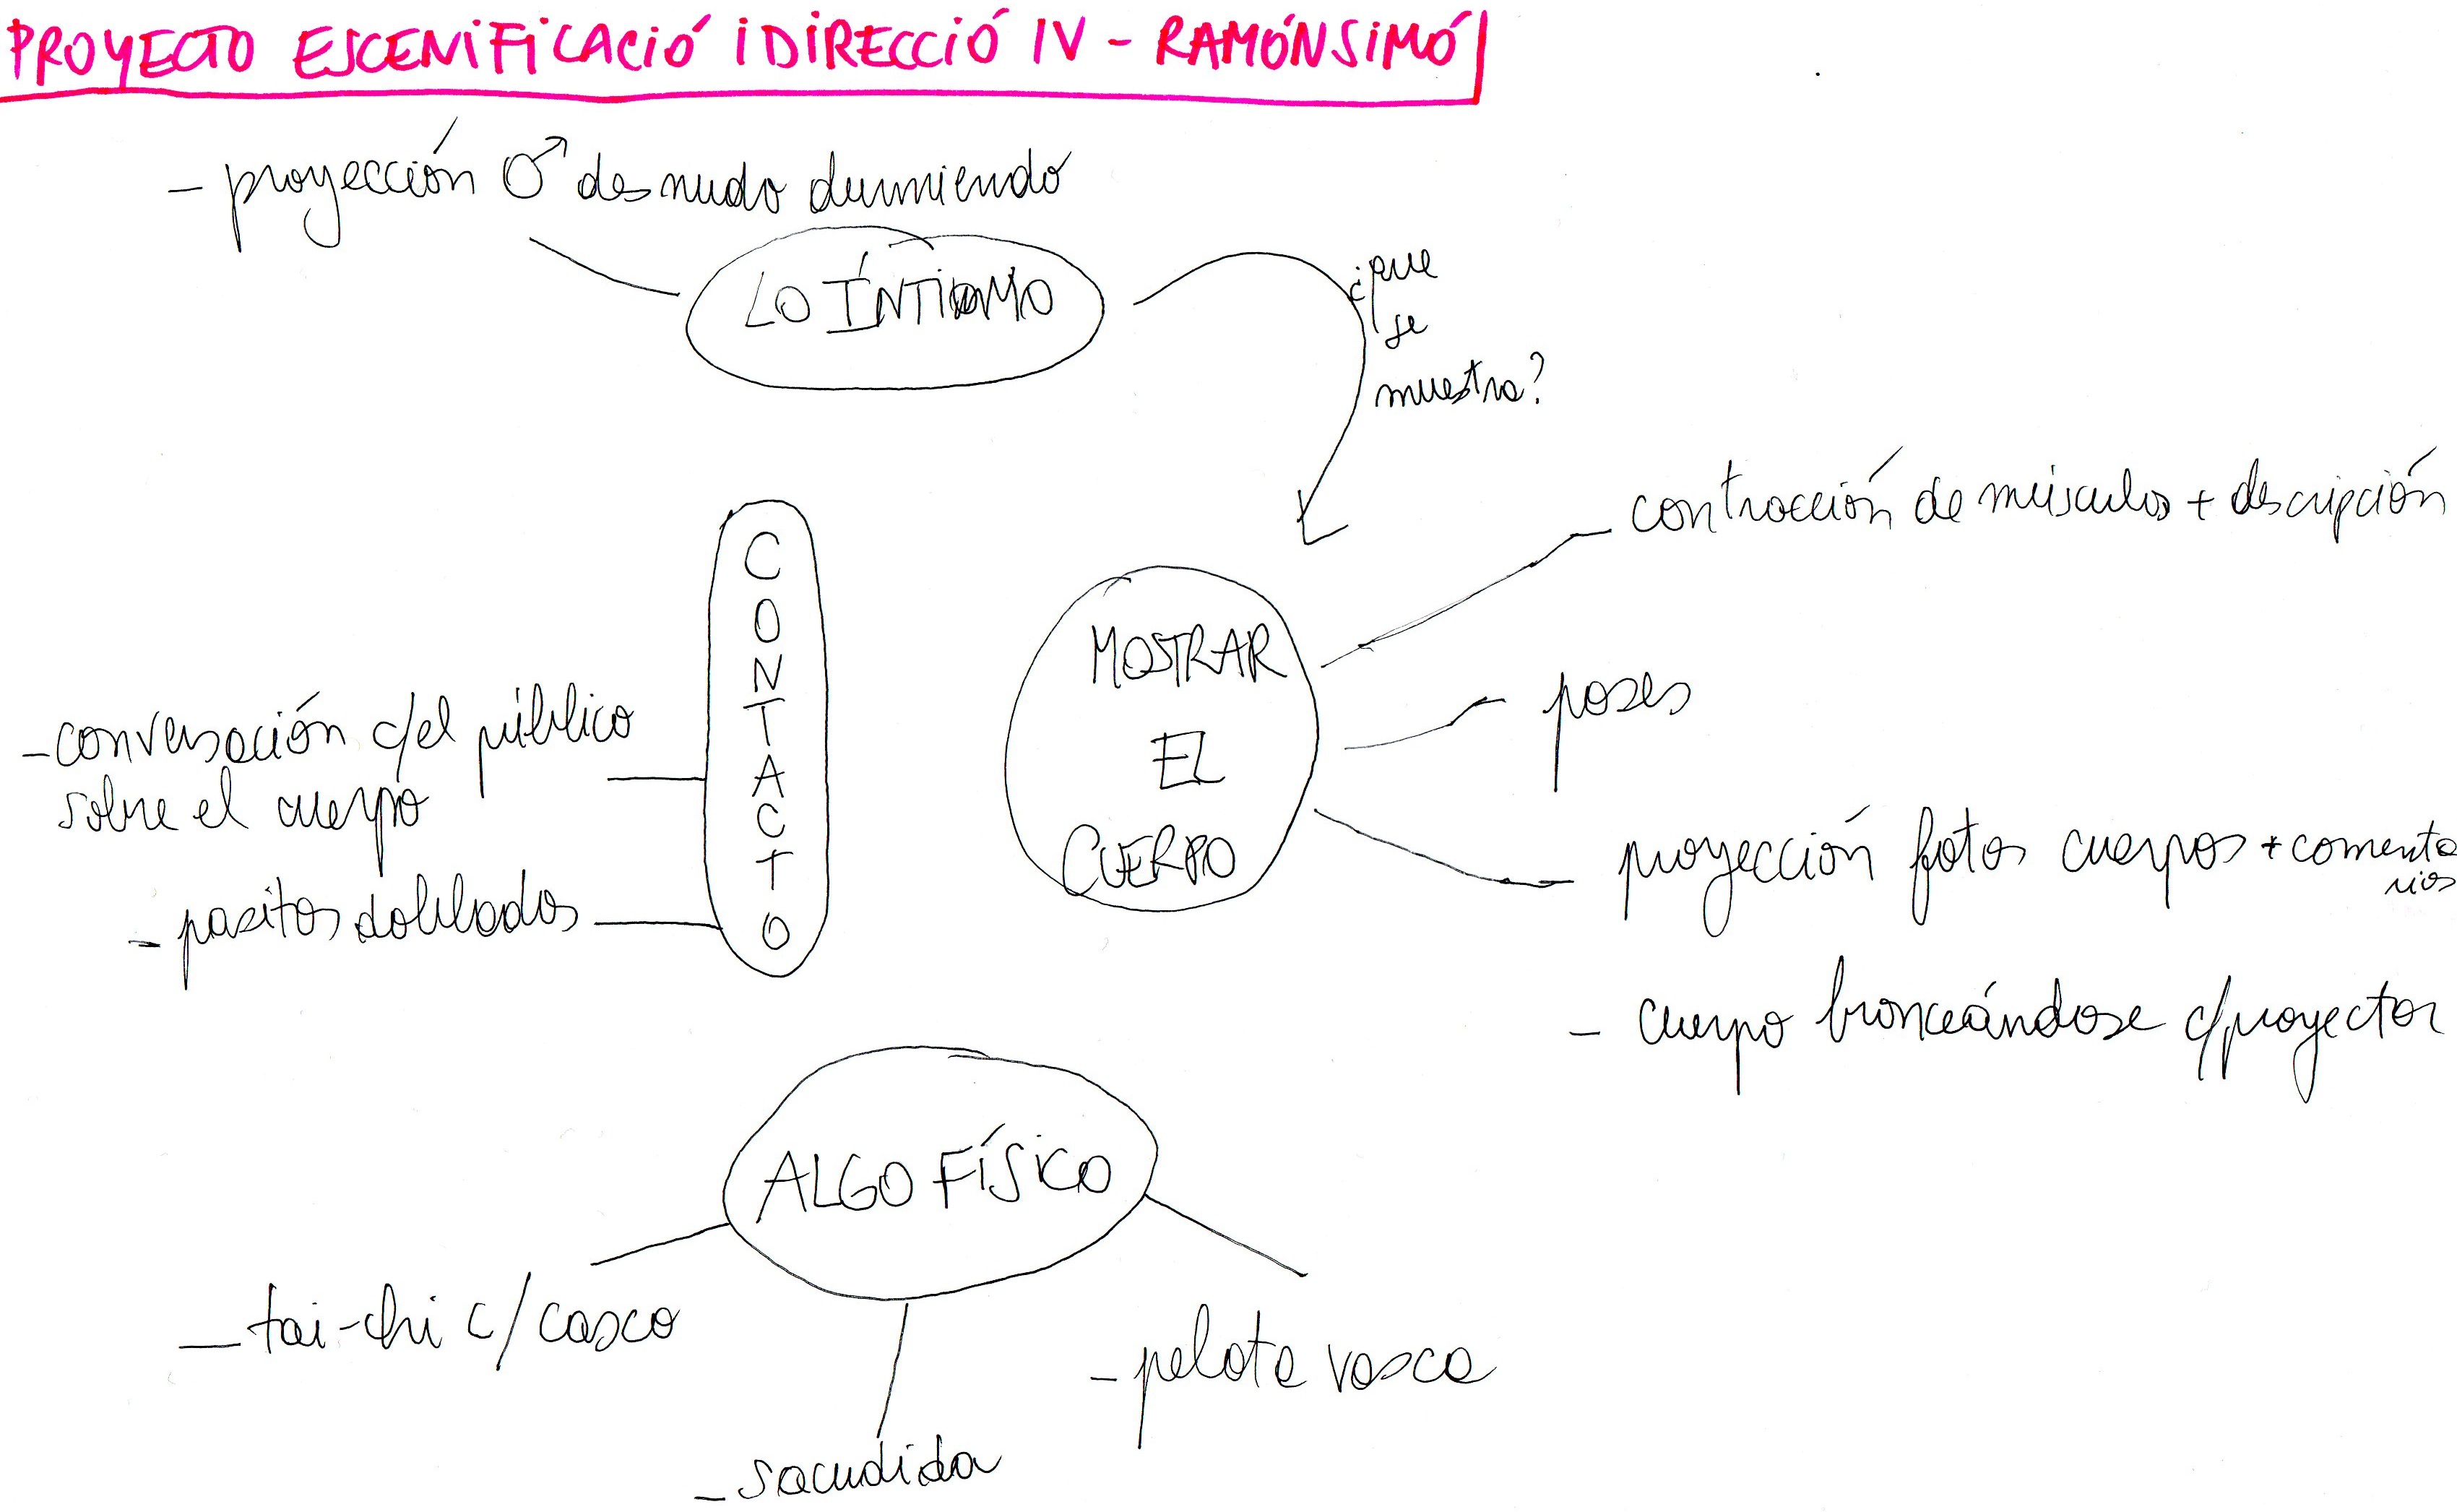 PROYECTO ESCENIFICACIÓ I DIRECCIÓ IV - RAMÓN SIMÓ
- proyección ♂ desnudo durmiendo
LO ÍNTIMO
¿que
se
muestra?
contracción de músculos + descripción
CONTACTO
MOSTRAR
EL
CUERPO
poses
- conversación c/el público
sobre el cuerpo
proyección fotos cuerpos + comenta
rios
- pasitos doblados
- cuerpo bronceándose c/proyector
ALGO FÍSICO
- tai-chi c/casco
- pelota vasca
- sacudida